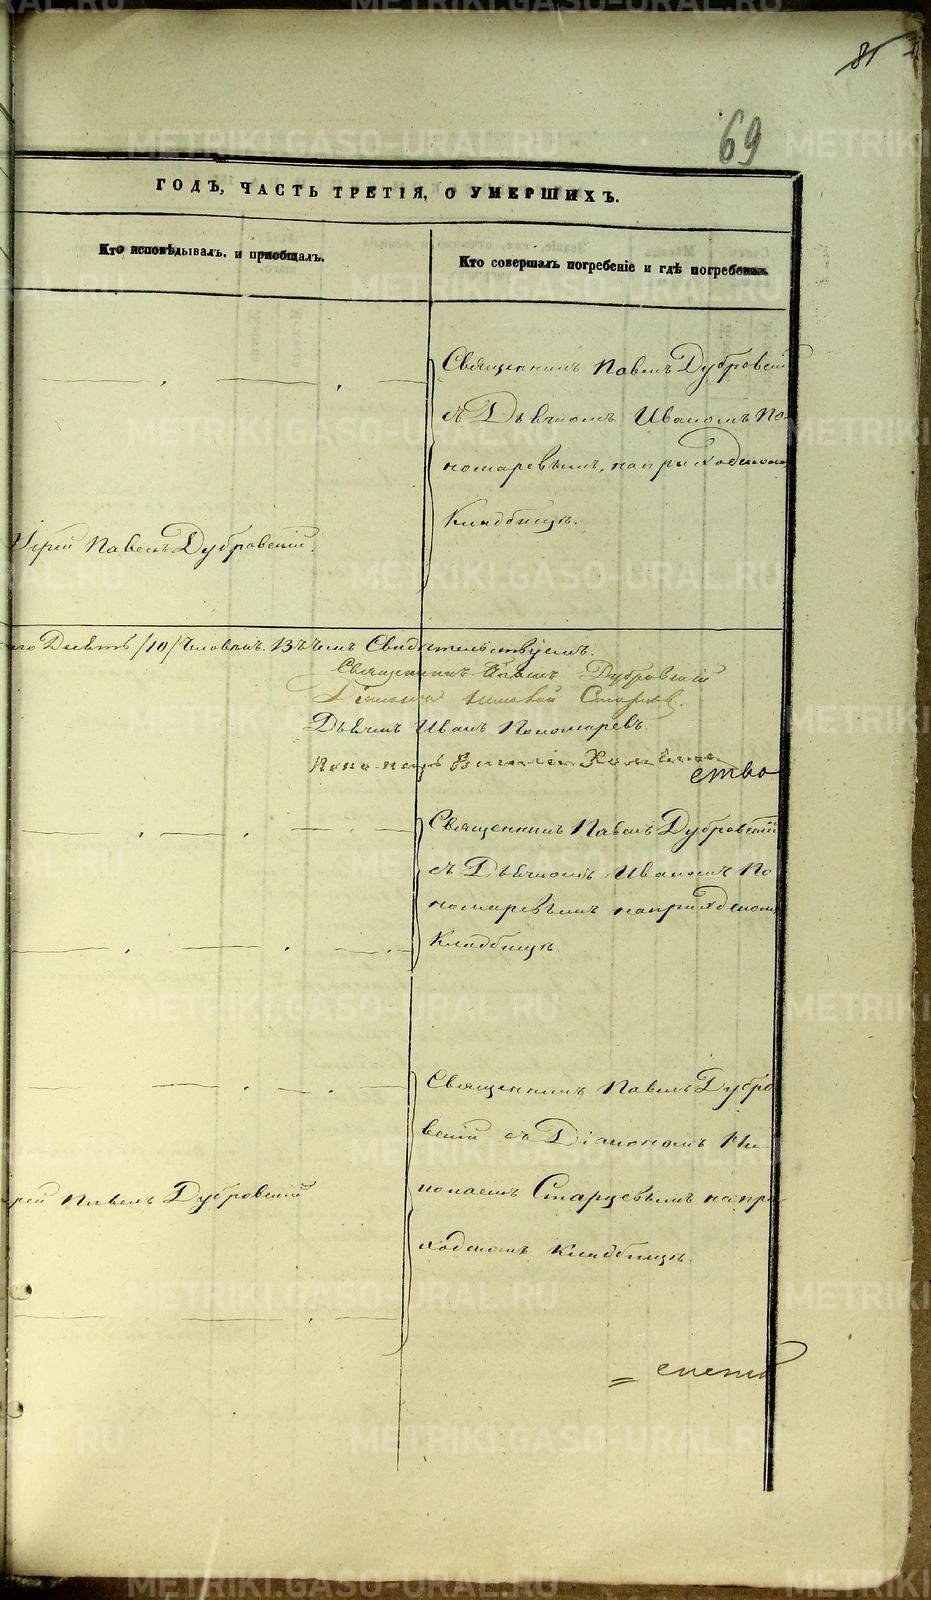 81
69
ГОДЪ, ЧАСТЬ ТРЕТІЯ, О УМЕРШИХЪ.
Кто исповѣдывалъ. и пріобщалъ.
Кто совершалъ погребеніе и гдѣ погребены.
Священникъ Павелъ Дубровскій
съ Дьячкомъ Иваномъ По-
номаревымъ, на приходскомъ
Кладбищѣ.
Іерей Павелъ Дубровскій.
Десять /10/ Человѣкъ. Въ чемъ Свидѣтельствуемъ.
Священникъ Павелъ Дубровскій
Діаконъ Николай Старцевъ.
Дьячекъ Иванъ Пономаревъ.
Пономарь
ство
Священникъ Павелъ Дубровскій
съ Дьячкомъ Иваномъ По
номаревымъ на приходскомъ
Кладбищѣ.
Священникъ Павелъ Дубро
вскій съ Діакономъ Ни
колаемъ Старцевымъ на при-
ходскомъ Кладбищѣ.
рей Павелъ Дубровскій
METRIKI.GASO-URAL.RU